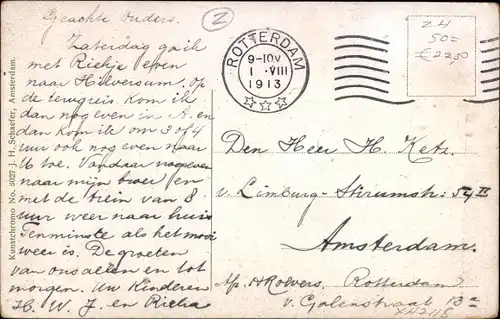 Geachte Ouders.
Zaterdag ga ik
met Riekje even
naar Hilversum. Op
de terugreis kom ik
dan nog even in A. en
dan kom ik om 3 of 4
uur ook nog even naar
U toe. Vandaar nog even
naar mijn broer en
met de trein van 8
uur weer naar huis
Tenminste als het mooi
weer is. De groeten
van ons allen en tot
morgen. Uw Kinderen
H. W. J. en Rieka
Kunstchromo No. 8027 J. H. Schaefer, Amsterdam.
Z
ROTTERDAM
9-10V
1 · VIII
1913
Z H
50=
€ 22,50
Den Heer H. Ketz.
v. Limburg-Stirumstr: 54 II
Amsterdam.
Afz. H Rolvers. Rotterdam
v. Galenstraat 13a